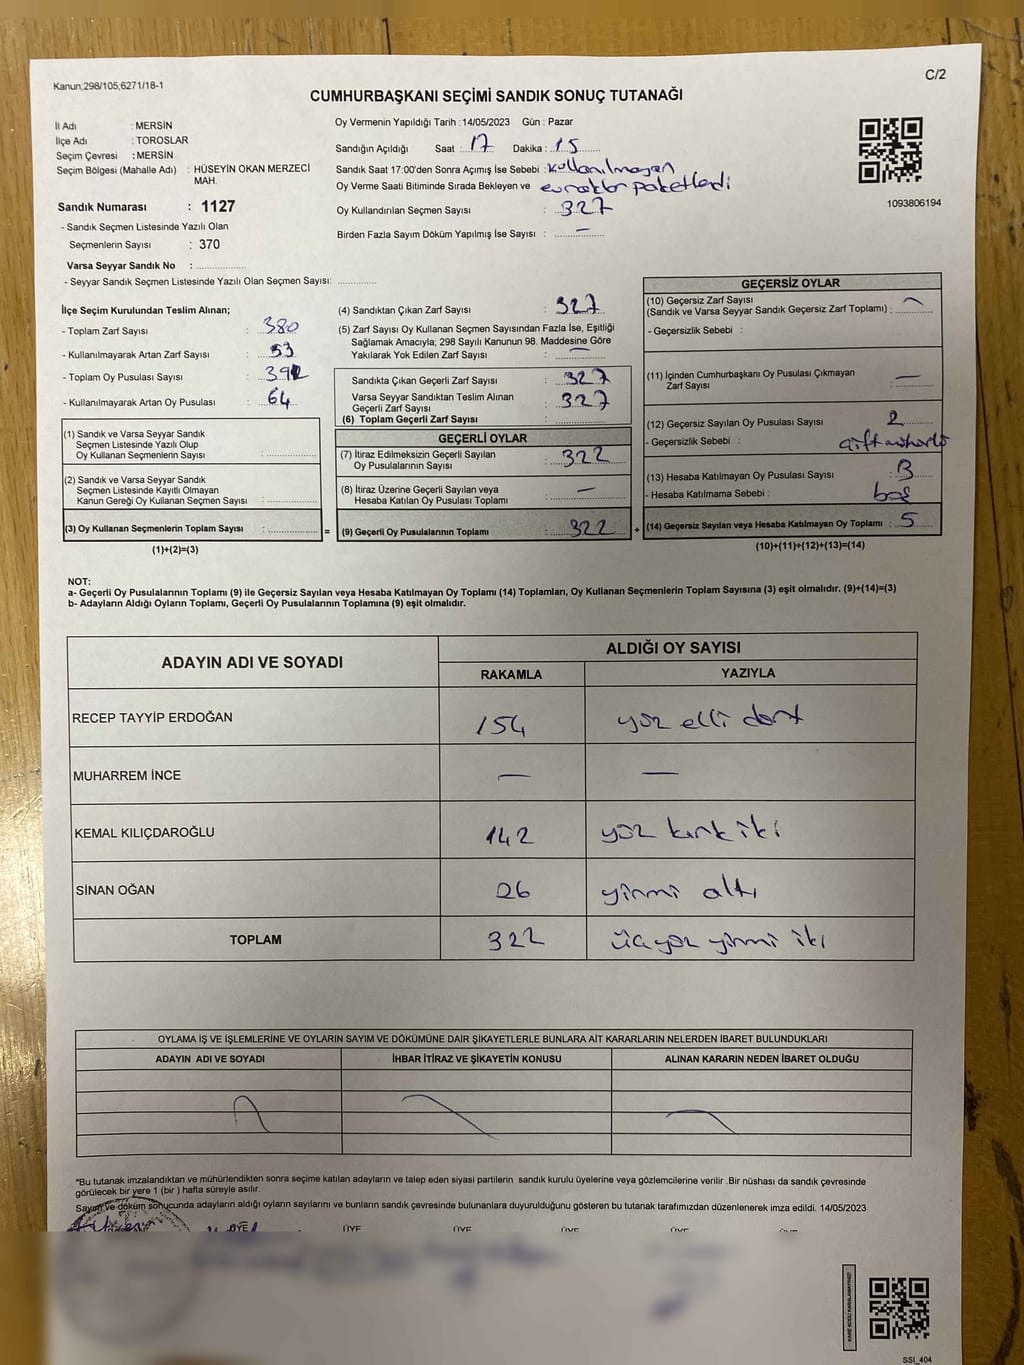 Kanun;298/105;6271/18-1
C/2
CUMHURBAŞKANI SEÇİMİ SANDIK SONUÇ TUTANAĞI
İl Adı : MERSİN
İlçe Adı : TOROSLAR
Seçim Çevresi : MERSİN
Seçim Bölgesi (Mahalle Adı) : HÜSEYİN OKAN MERZECİ MAH.
Sandık Numarası : 1127
- Sandık Seçmen Listesinde Yazılı Olan
Seçmenlerin Sayısı : 370
Varsa Seyyar Sandık No : ................
- Seyyar Sandık Seçmen Listesinde Yazılı Olan Seçmen Sayısı: .............
Oy Vermenin Yapıldığı Tarih : 14/05/2023 Gün : Pazar
Sandığın Açıldığı Saat : 17 Dakika : 15
Sandık Saat 17:00'den Sonra Açımış İse Sebebi : kullanılmayan
Oy Verme Saati Bitiminde Sırada Bekleyen ve evraklar paketlendi
Oy Kullandırılan Seçmen Sayısı : 327
Birden Fazla Sayım Döküm Yapılmış İse Sayısı : —
1093806194
İlçe Seçim Kurulundan Teslim Alınan;
- Toplam Zarf Sayısı : 380
- Kullanılmayarak Artan Zarf Sayısı : 53
- Toplam Oy Pusulası Sayısı :
- Kullanılmayarak Artan Oy Pusulası : 64
(1) Sandık ve Varsa Seyyar Sandık
Seçmen Listesinde Yazılı Olup
Oy Kullanan Seçmenlerin Sayısı : ............
(2) Sandık ve Varsa Seyyar Sandık
Seçmen Listesinde Kayıtlı Olmayan
Kanun Gereği Oy Kullanan Seçmen Sayısı : ............
(3) Oy Kullanan Seçmenlerin Toplam Sayısı : ............ =
(1)+(2)=(3)
(4) Sandıktan Çıkan Zarf Sayısı : 327
(5) Zarf Sayısı Oy Kullanan Seçmen Sayısından Fazla İse, Eşitliği
Sağlamak Amacıyla; 298 Sayılı Kanunun 98. Maddesine Göre
Yakılarak Yok Edilen Zarf Sayısı : —
Sandıkta Çıkan Geçerli Zarf Sayısı : 327
Varsa Seyyar Sandıktan Teslim Alınan
Geçerli Zarf Sayısı : 327
(6) Toplam Geçerli Zarf Sayısı : ............
GEÇERLİ OYLAR
(7) İtiraz Edilmeksizin Geçerli Sayılan
Oy Pusulalarının Sayısı : 322
(8) İtiraz Üzerine Geçerli Sayılan veya
Hesaba Katılan Oy Pusulası Toplamı : —
(9) Geçerli Oy Pusulalarının Toplamı : 322 +
GEÇERSİZ OYLAR
(10) Geçersiz Zarf Sayısı
(Sandık ve Varsa Seyyar Sandık Geçersiz Zarf Toplamı) : —
- Geçersizlik Sebebi :
(11) İçinden Cumhurbaşkanı Oy Pusulası Çıkmayan
Zarf Sayısı : —
(12) Geçersiz Sayılan Oy Pusulası Sayısı : 2
- Geçersizlik Sebebi : çift mühürlü
(13) Hesaba Katılmayan Oy Pusulası Sayısı : 3
- Hesaba Katılmama Sebebi : boş
(14) Geçersiz Sayılan veya Hesaba Katılmayan Oy Toplamı : 5
(10)+(11)+(12)+(13)=(14)
NOT:
a- Geçerli Oy Pusulalarının Toplamı (9) ile Geçersiz Sayılan veya Hesaba Katılmayan Oy Toplamı (14) Toplamları, Oy Kullanan Seçmenlerin Toplam Sayısına (3) eşit olmalıdır. (9)+(14)=(3)
b- Adayların Aldığı Oyların Toplamı, Geçerli Oy Pusulalarının Toplamına (9) eşit olmalıdır.
ADAYIN ADI VE SOYADI
ALDIĞI OY SAYISI
RAKAMLA YAZIYLA
RECEP TAYYİP ERDOĞAN 154 yüz elli dört
MUHARREM İNCE — —
KEMAL KILIÇDAROĞLU 142 yüz kırk iki
SİNAN OĞAN 26 yirmi altı
TOPLAM 322 üçyüz yirmi iki
OYLAMA İŞ VE İŞLEMLERİNE VE OYLARIN SAYIM VE DÖKÜMÜNE DAİR ŞİKAYETLERLE BUNLARA AİT KARARLARIN NELERDEN İBARET BULUNDUKLARI
ADAYIN ADI VE SOYADI İHBAR İTİRAZ VE ŞİKAYETİN KONUSU ALINAN KARARIN NEDEN İBARET OLDUĞU
*Bu tutanak imzalandıktan ve mühürlendikten sonra seçime katılan adayların ve talep eden siyasi partilerin sandık kurulu üyelerine veya gözlemcilerine verilir .Bir nüshası da sandık çevresinde
görülecek bir yere 1 (bir ) hafta süreyle asılır.
Sayım ve döküm sonucunda adayların aldığı oyların sayılarını ve bunların sandık çevresinde bulunanlara duyurulduğunu gösteren bu tutanak tarafımızdan düzenlenerek imza edildi. 14/05/2023
ÜYE ÜYE ÜYE ÜYE
SSI_404